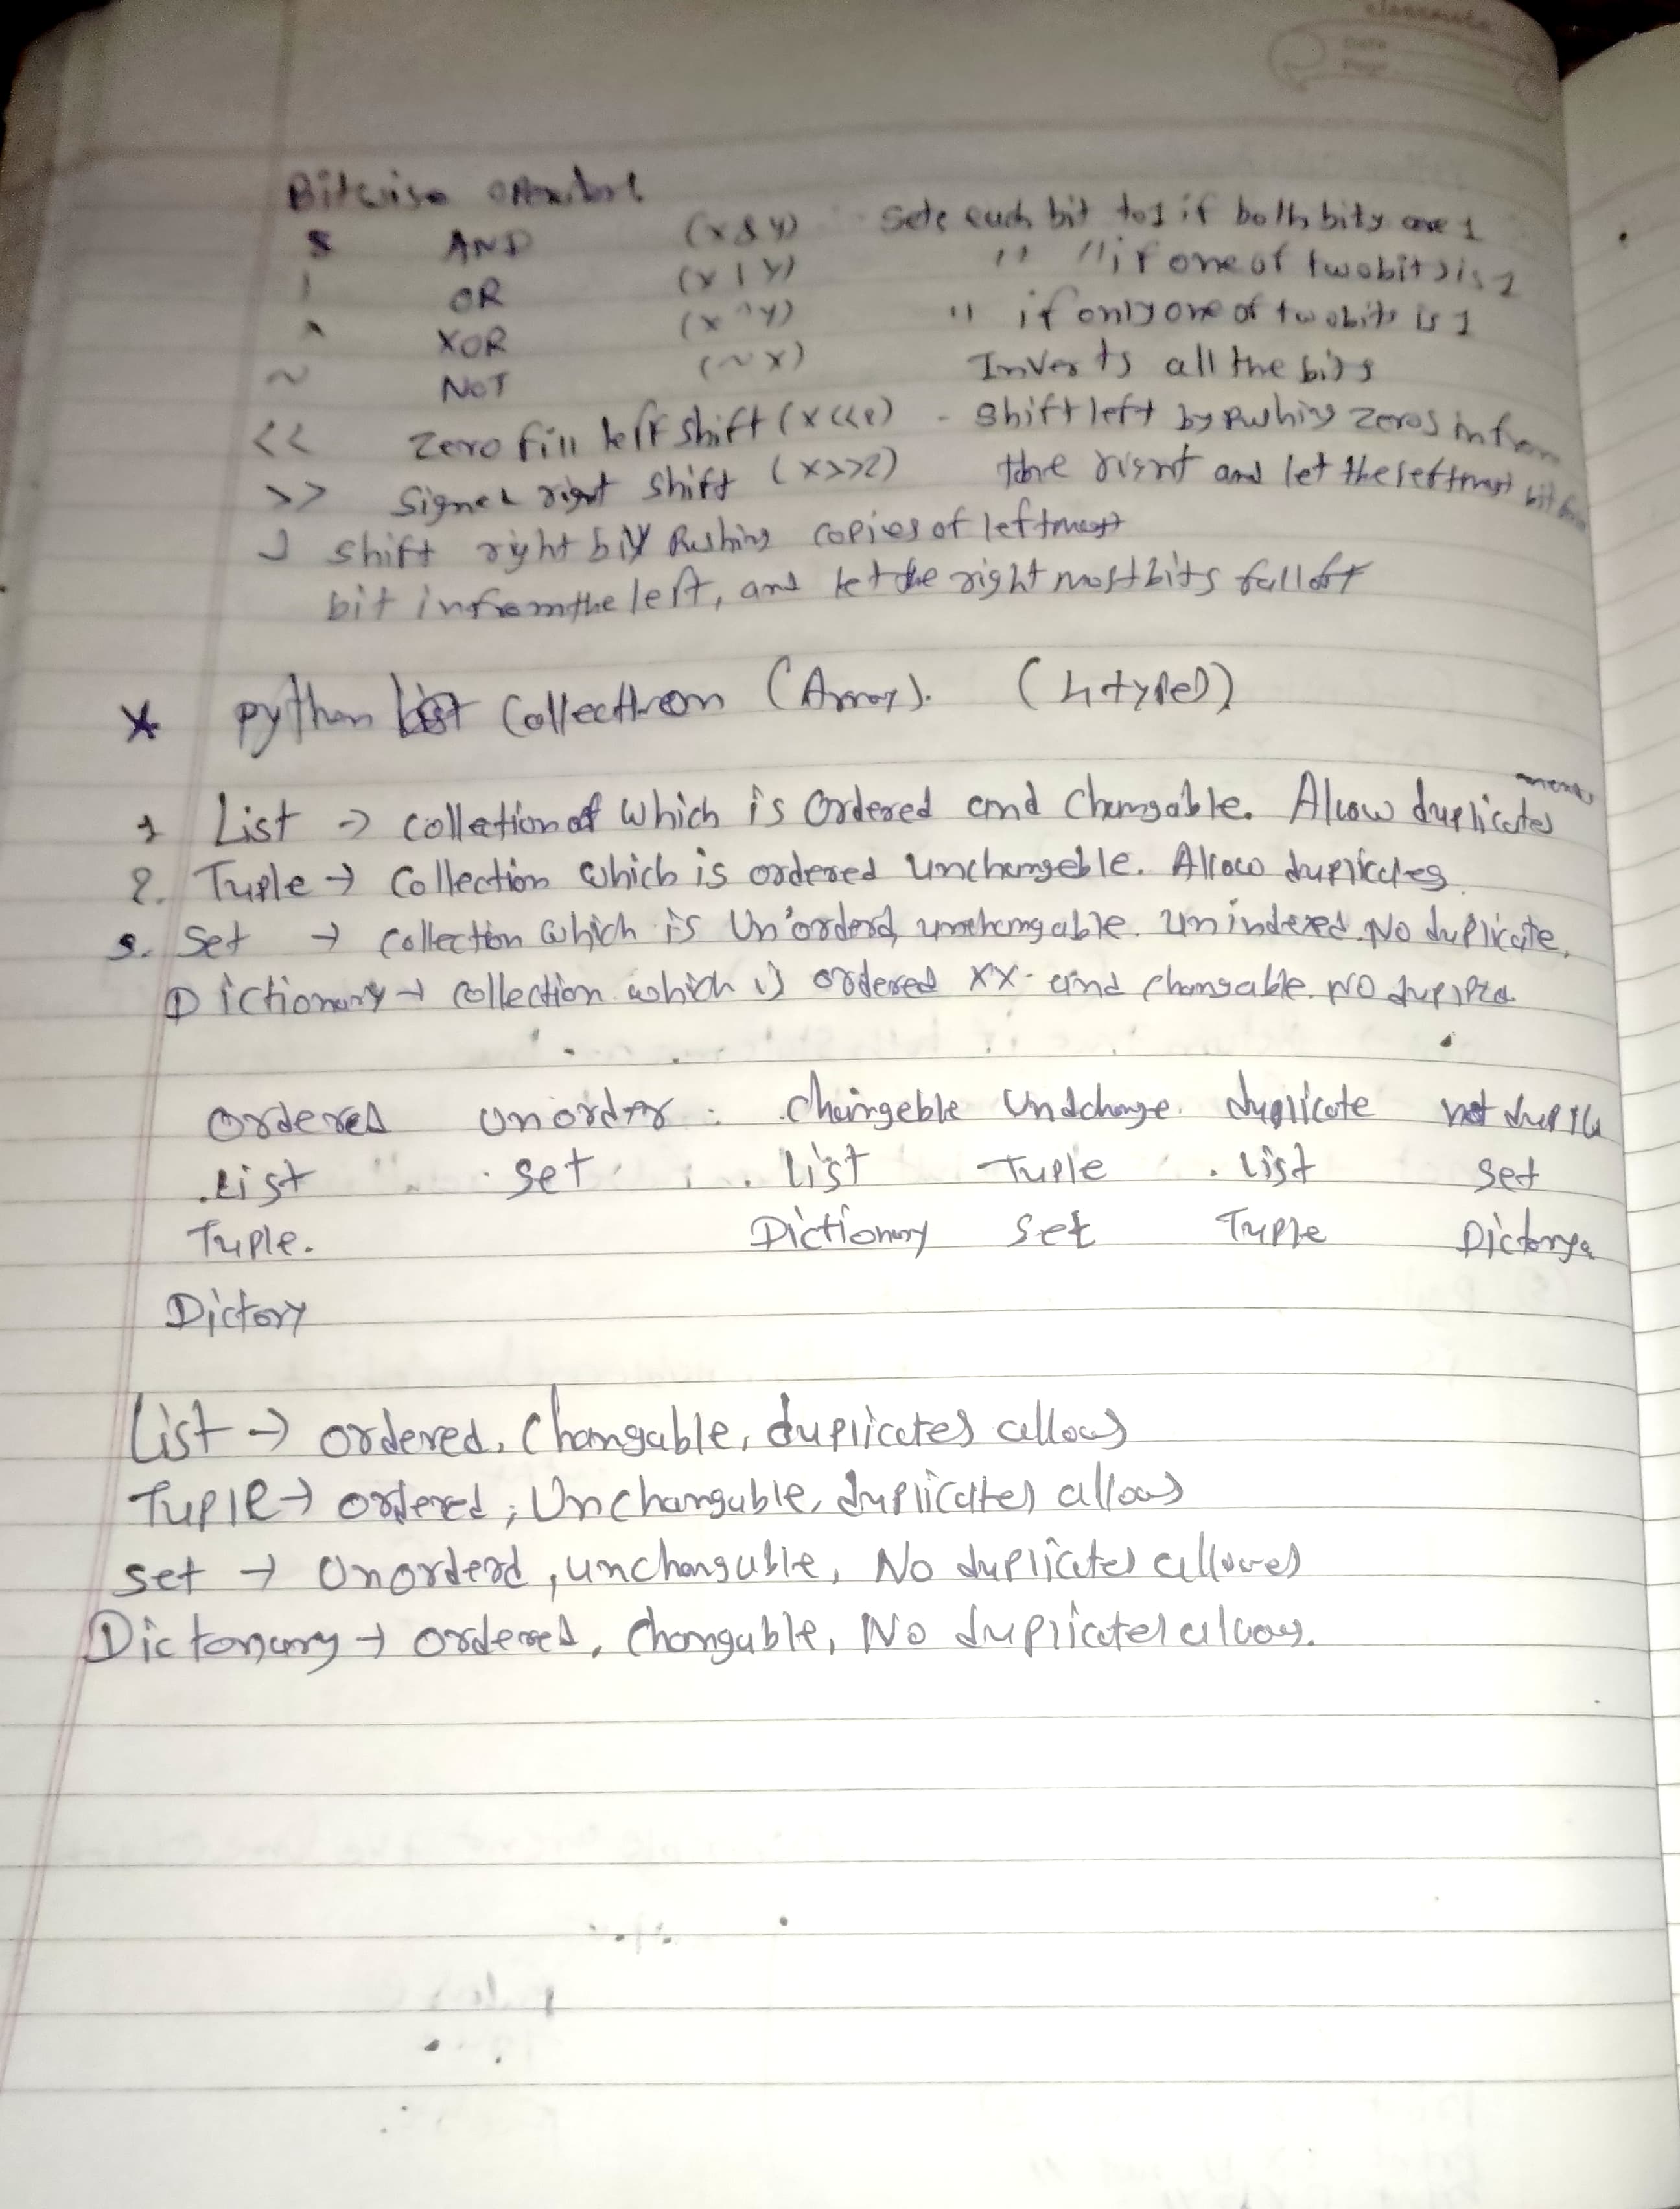 classmate
Date
Page
Bitwise operators
& AND (x & y) sets each bit to 1 if both bits are 1
| OR (x | y) " " if one of two bits is 1
^ XOR (x ^ y) " if only one of two bits is 1
~ NOT (~x) Inverts all the bits
<< Zero fill left shift (x<<2) - shift left by pushing zeros in from
>> Signed right shift (x>>2) the right and let the leftmost bit
shift right by pushing copies of leftmost
bit in from the left, and let the right most bits fall off
* python Collection (Array). (4 types)
1 List → collection of which is Ordered and Changable. Allow duplicates
2. Tuple → Collection which is ordered unchangeble. Allow duplicates
3. Set → collection which is Un'orderd, unchangable. unindexed. No duplicate.
Dictionary → collection which is ordered xx- and changable. NO
Ordered unorder : changeble duplicate not
List set List Tuple . List set
Tuple. Dictionary set Tuple
Dictory
List → ordered, Changable, duplicates allows
Tuple → ordered, Unchangable, duplicates allows
set → Unorderd, unchangable, No duplicates allowed
Dictonary → ordered, Changable, No duplicates allows.